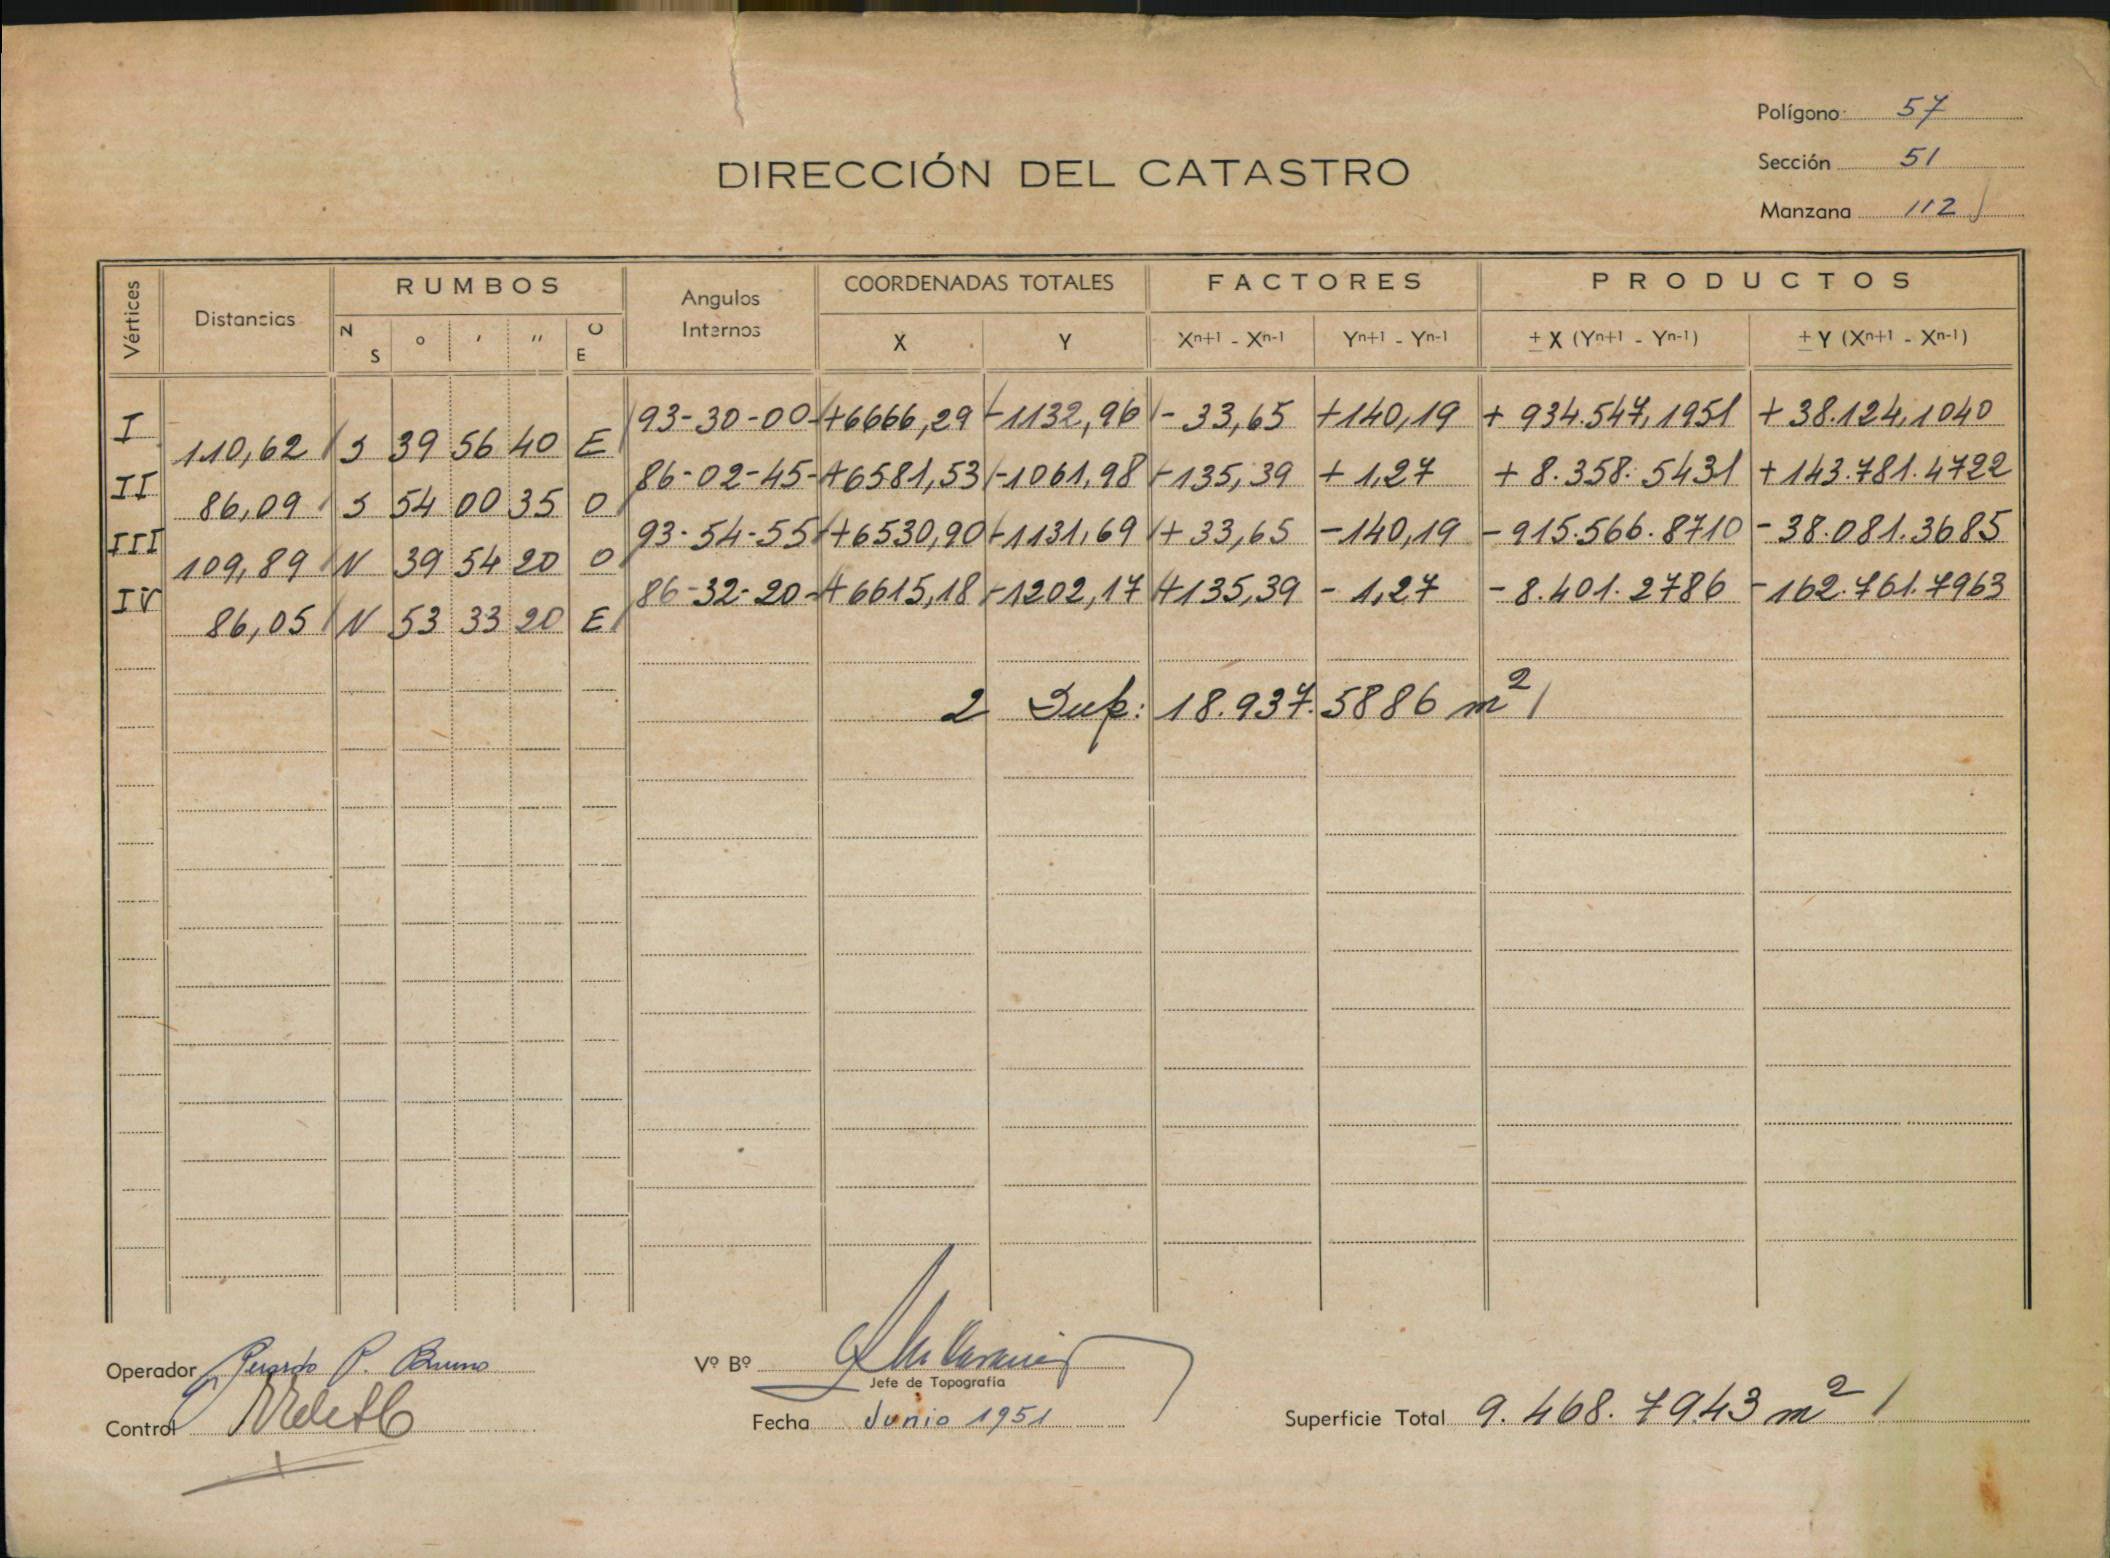 Polígono 57
Sección 51
Manzana 112
DIRECCIÓN DEL CATASTRO
Vértices Distancias RUMBOS Angulos Internos COORDENADAS TOTALES FACTORES PRODUCTOS
N S ° ' '' O E X Y Xn+1 - Xn-1 Yn+1 - Yn-1 ± X (Yn+1 - Yn-1) ± Y (Xn+1 - Xn-1)
I 93-30-00 +6666,29 -1132,96 - 33,65 +140,19 + 934.547,1951 + 38.124,1040
110,62 S 39 56 40 E
II 86-02-45 +6581,53 -1061,98 -135,39 + 1,27 + 8.358.5431 + 143.781.4722
86,09 S 54 00 35 O
III 93-54-55 +6530,90 -1131,69 + 33,65 -140,19 - 915.566.8710 - 38.081.3685
109,89 N 39 54 20 O
IV 86-32-20 +6615,18 -1202,17 +135,39 - 1,27 - 8.401.2786 - 162.761.7963
86,05 N 53 33 20 E
2 Sup: 18.937.5886 m²
Operador P. Bruno
Vº Bº
Jefe de Topografía
Control
Fecha Junio 1951
Superficie Total 9.468.7943 m²